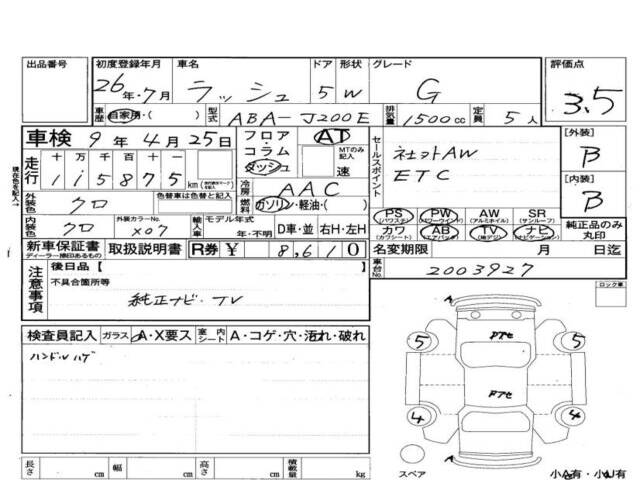 出品番号 初度登録年月 車名 ドア 形状 グレード 評価点
26年・7月 ラッシュ 5 W G 3.5
車歴 自家用・( ) 型式 ABA-J200E 排気量 1500cc 定員 5人
車検 9年 4月 25日 フロア AT
コラム MTのみ記入
ダッシュ 速
走行 十 万 千 百 十 一
1 1 5 8 7 5 km
セールスポイント 社外AW
ETC
[外装] B
[内装] B
外装色 クロ 色替車は色替と記入
冷房 AAC
燃料 ガソリン・軽油・( )
内装色 クロ 外装カラーNo. X07 輸入車 モデル年式 年・不明 D車・並 右H・左H
PS (パワステ) PW (パワーウインド) AW (アルミホイル) SR (サンルーフ)
カワ (カワシート) AB (エアバッグ) TV (地デジ) ナビ (ナビゲーション)
純正品のみ丸印
新車保証書 ディーラー捺印あるもの 取扱説明書 R券 ¥ 8,610 名変期限 月 日迄
注意事項 後日品【
不具合箇所等
純正ナビ・TV
車台No. 2003927
ロック車
検査員記入 ガラス A・X要ス 室内シート A・コゲ・穴・汚れ・破れ
ハンドルハゲ
5 5
4 4
長さ cm 幅 cm 高さ cm 積載量 kg
スペア 小A有・小U有
現在色を記入